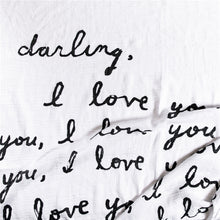 darling,
I love yo
you, I love you
you, I love yo
I love yo I lo